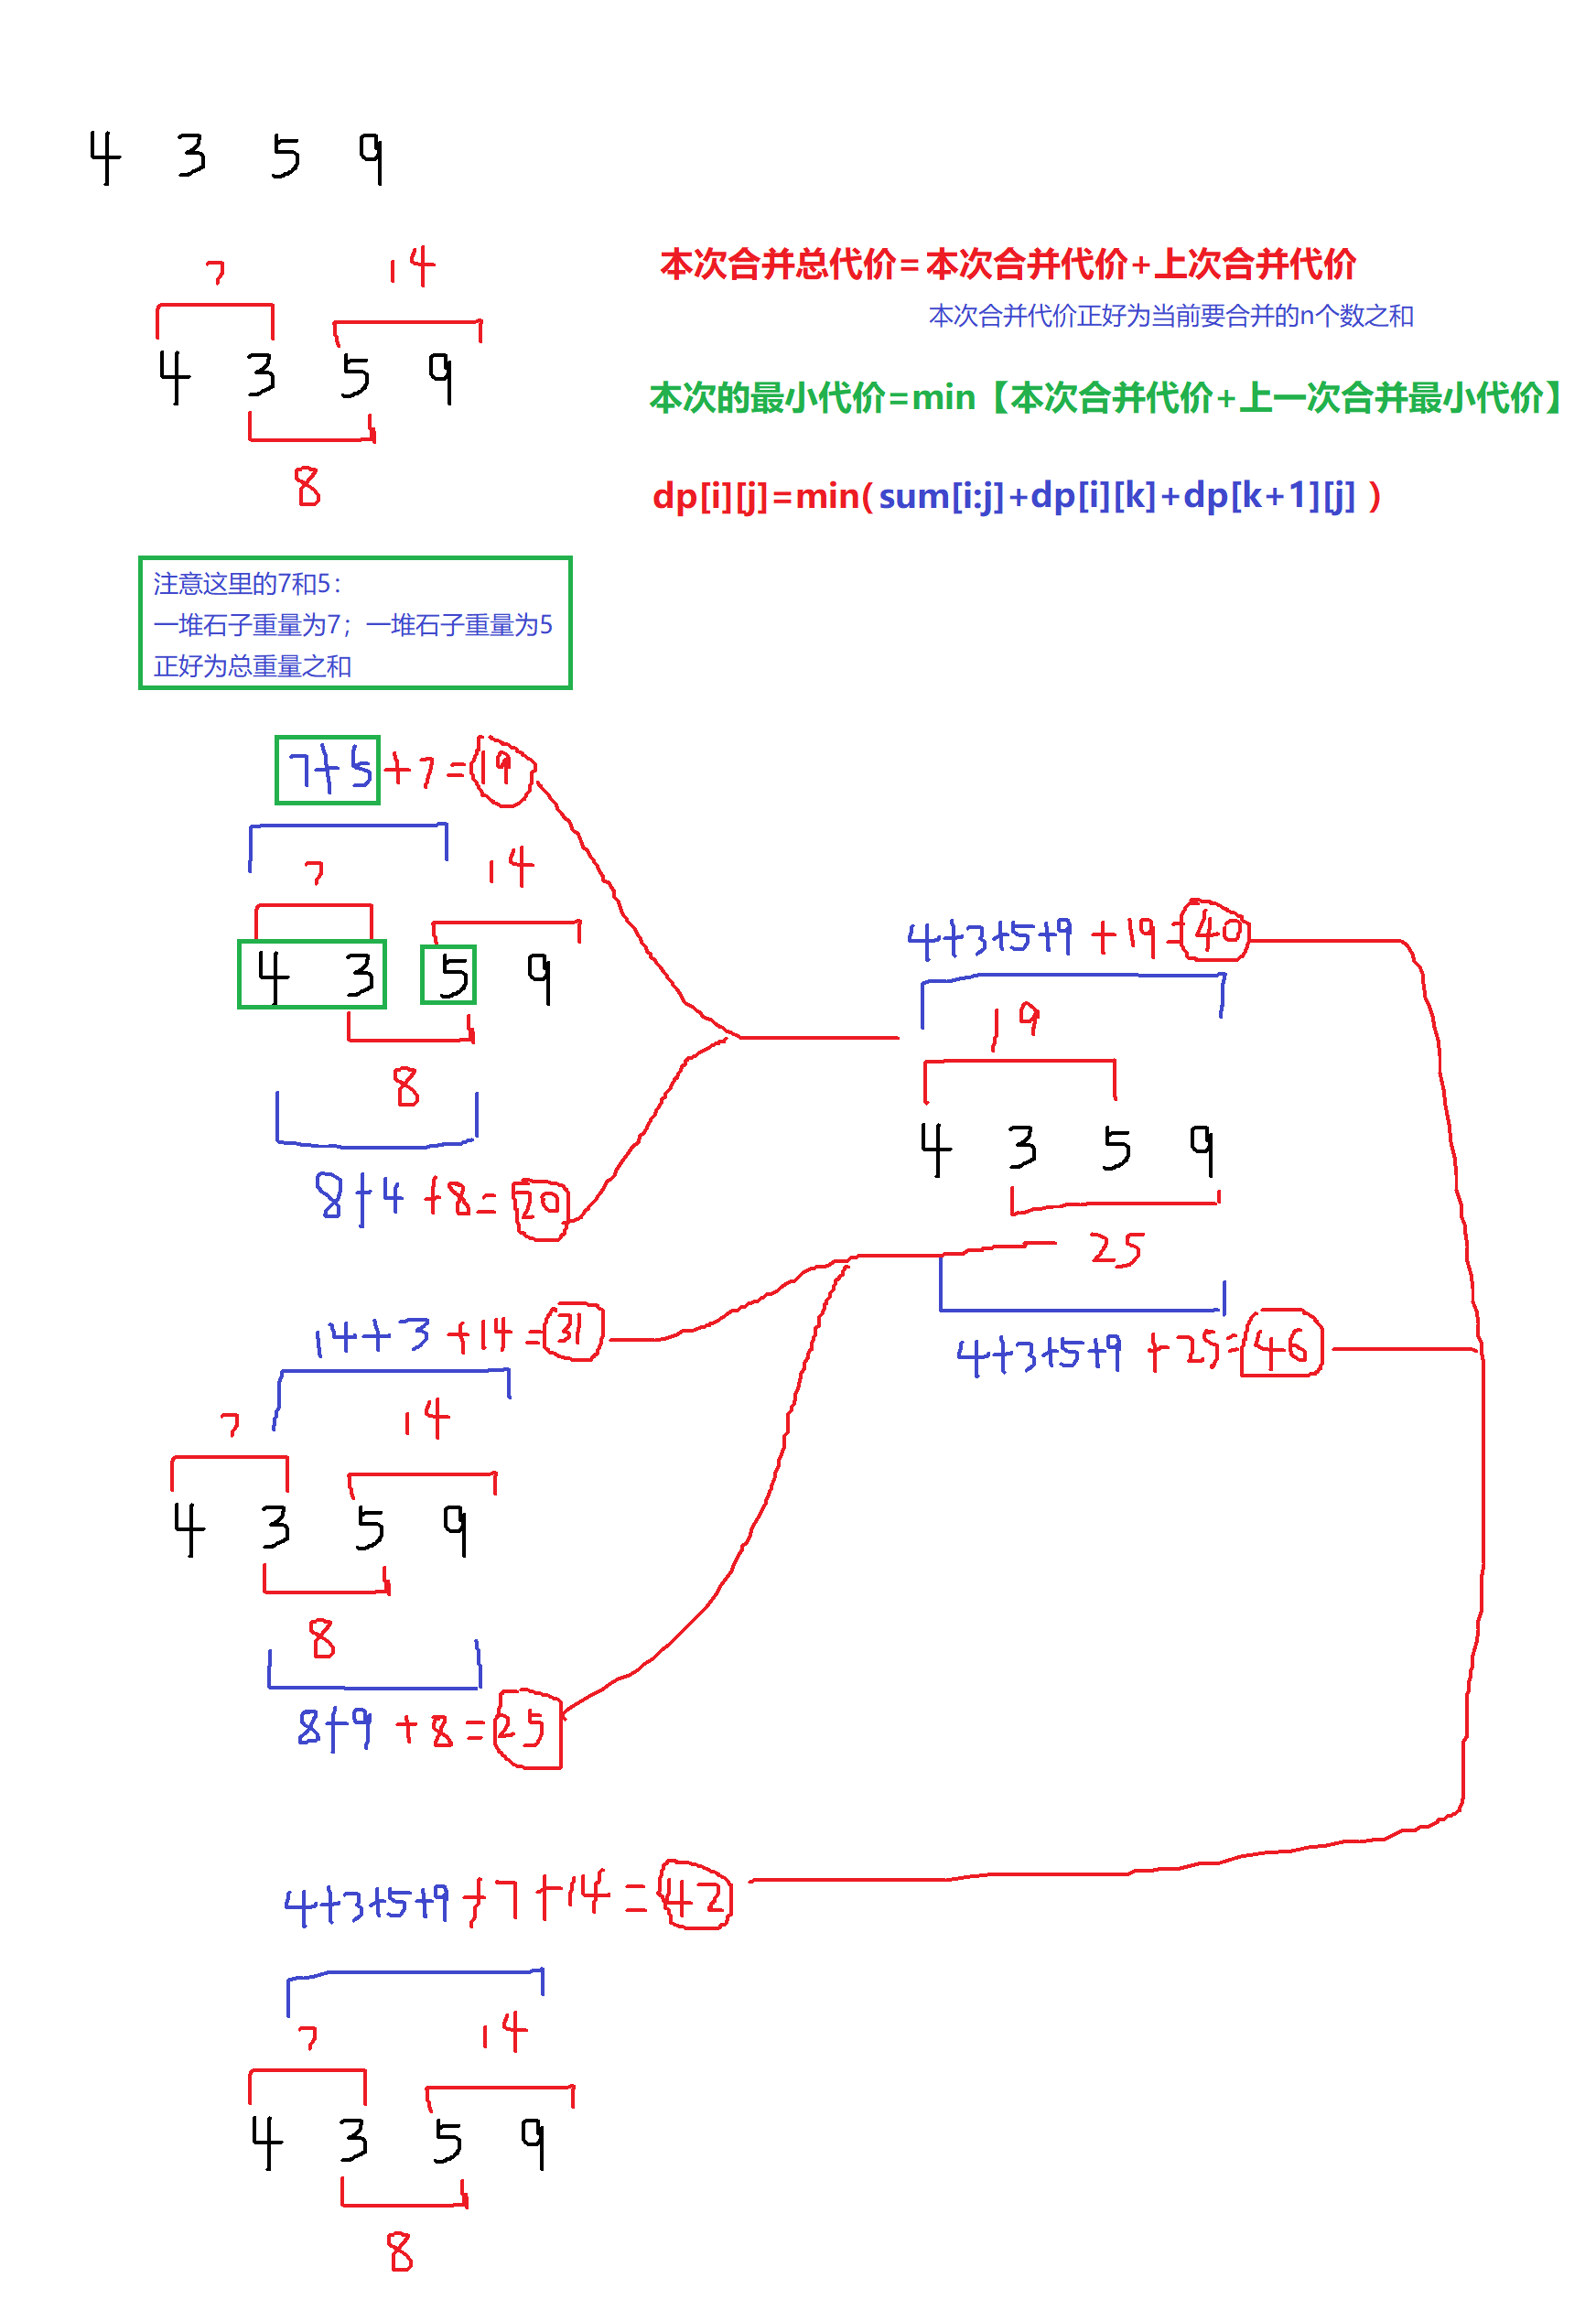 4 3 5 9
7 14
4 3 5 9
8
本次合并总代价=本次合并代价+上次合并代价
本次合并代价正好为当前要合并的n个数之和
本次的最小代价=min【本次合并代价+上一次合并最小代价】
dp[i][j]=min( sum[i:j]+dp[i][k]+dp[k+1][j] )
注意这里的7和5:
一堆石子重量为7；一堆石子重量为5
正好为总重量之和
7+5+7=19
7 14
4 3 5 9
8
8+4+8=20
4+3+5+9+19=40
19
4 3 5 9
25
4+3+5+9+25=46
14+3+14=31
7 14
4 3 5 9
8
8+9+8=25
4+3+5+9+7+14=42
7 14
4 3 5 9
8